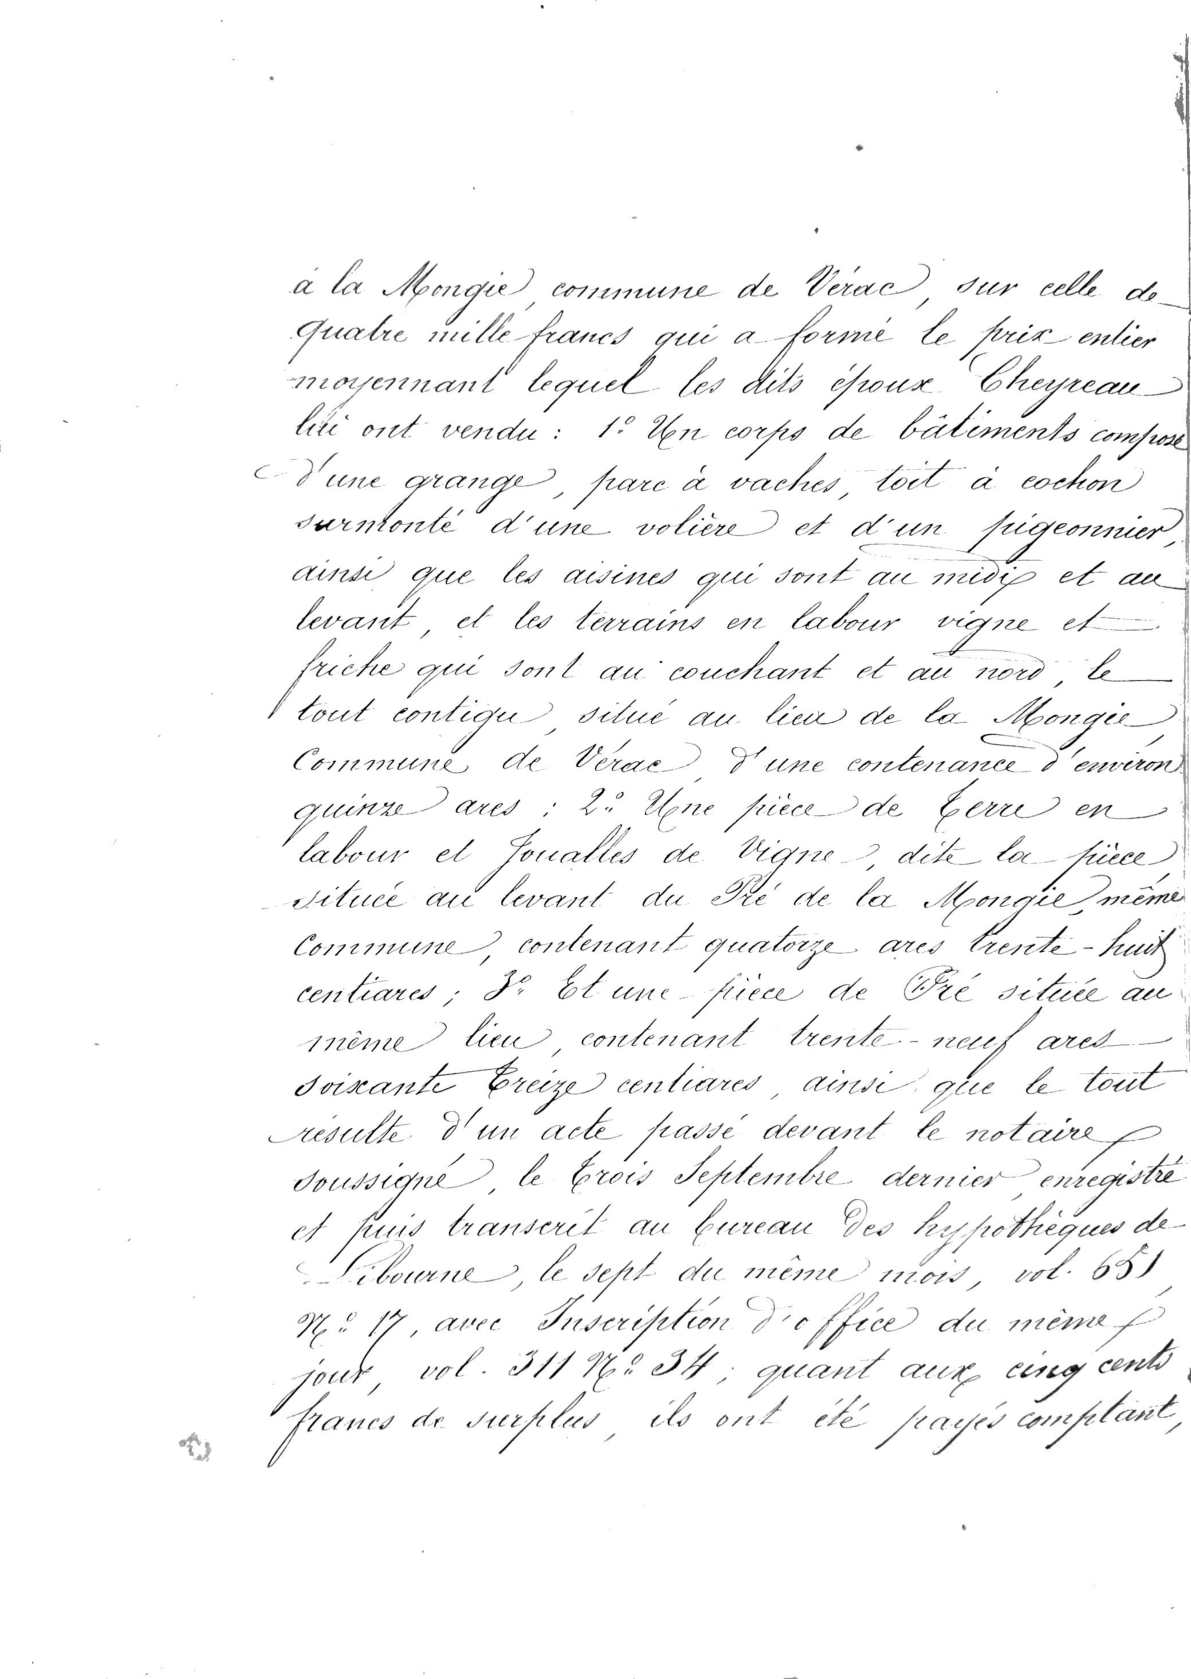 à la Mongie, commune de Vérac, sur celle de
quatre mille francs qui a formé le prix entier
moyennant lequel les dits époux Cheyreau
lui ont vendu : 1° Un corps de bâtiments composé
d'une grange, parc à vaches, toit à cochon
surmonté d'une volière et d'un pigeonnier,
ainsi que les aisines qui sont au midi et au
levant, et les terrains en labour vigne et
friche qui sont au couchant et au nord, le
tout contigu, situé au lieu de la Mongie,
Commune de Vérac, d'une contenance d'environ
quinze ares ; 2° Une pièce de terre en
labour et Joualles de Vigne, dite la pièce,
située au levant du Pré de la Mongie, même
Commune, contenant quatorze ares trente-huit
centiares ; 3° Et une pièce de Pré située au
même lieu, contenant trente-neuf ares
soixante treize centiares, ainsi que le tout
résulte d'un acte passé devant le notaire
soussigné, le trois Septembre dernier, enregistré
et puis transcrit au bureau des hypothèques de
Libourne, le sept du même mois, vol. 651,
N° 17, avec Inscription d'office du même
jour, vol. 311 N° 34 ; quant aux cinq cents
francs de surplus, ils ont été payés comptant,